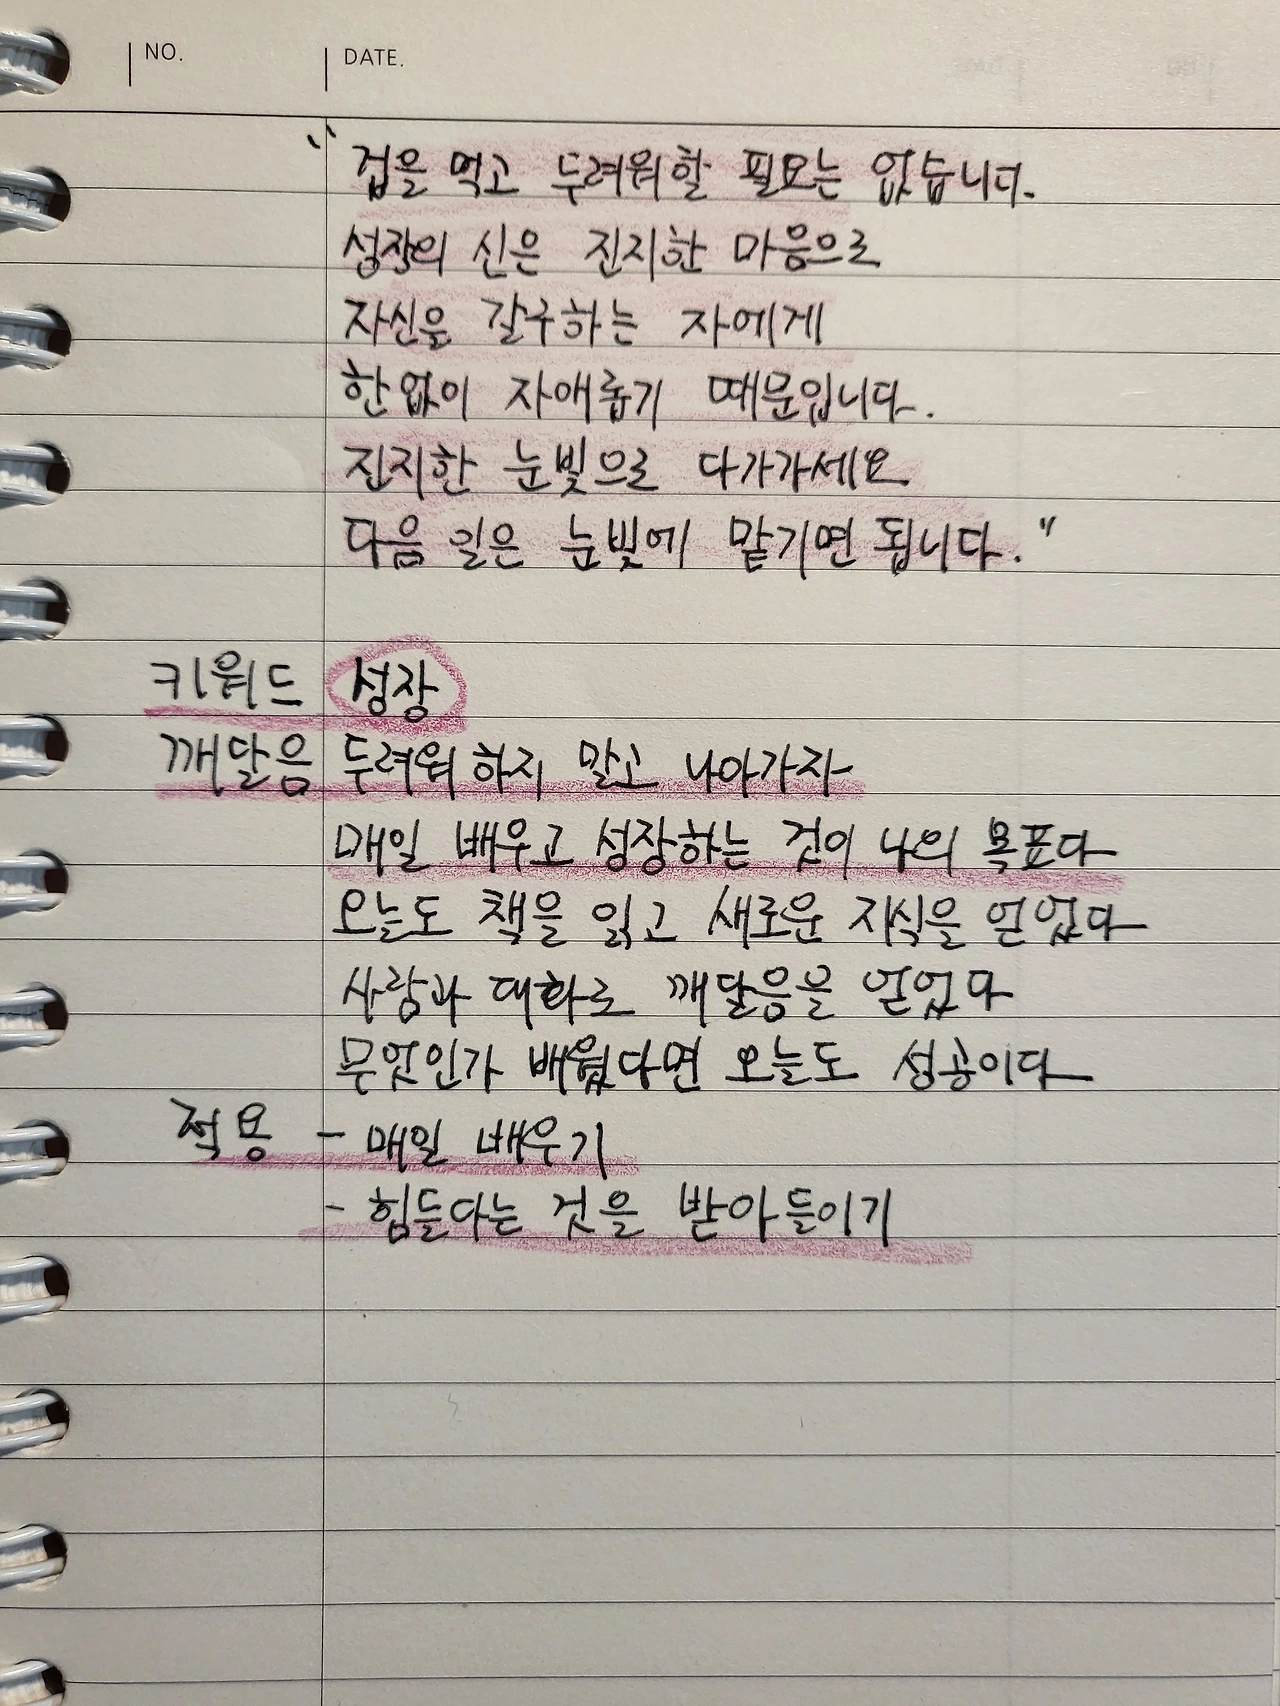 NO. DATE.
"겁을 먹고 두려워할 필요는 없습니다.
성장의 신은 진지한 마음으로
자신을 갈구하는 자에게
한없이 자애롭기 때문입니다.
진지한 눈빛으로 다가가세요
다음 일은 눈빛에 맡기면 됩니다."
키워드 성장
깨달음 두려워 하지 말고 나아가자
매일 배우고 성장하는 것이 나의 목표다
오늘도 책을 읽고 새로운 지식을 얻었다
사람과 대화로 깨달음을 얻었다
무엇인가 배웠다면 오늘도 성공이다
적용 - 매일 배우기
- 힘들다는 것을 받아들이기